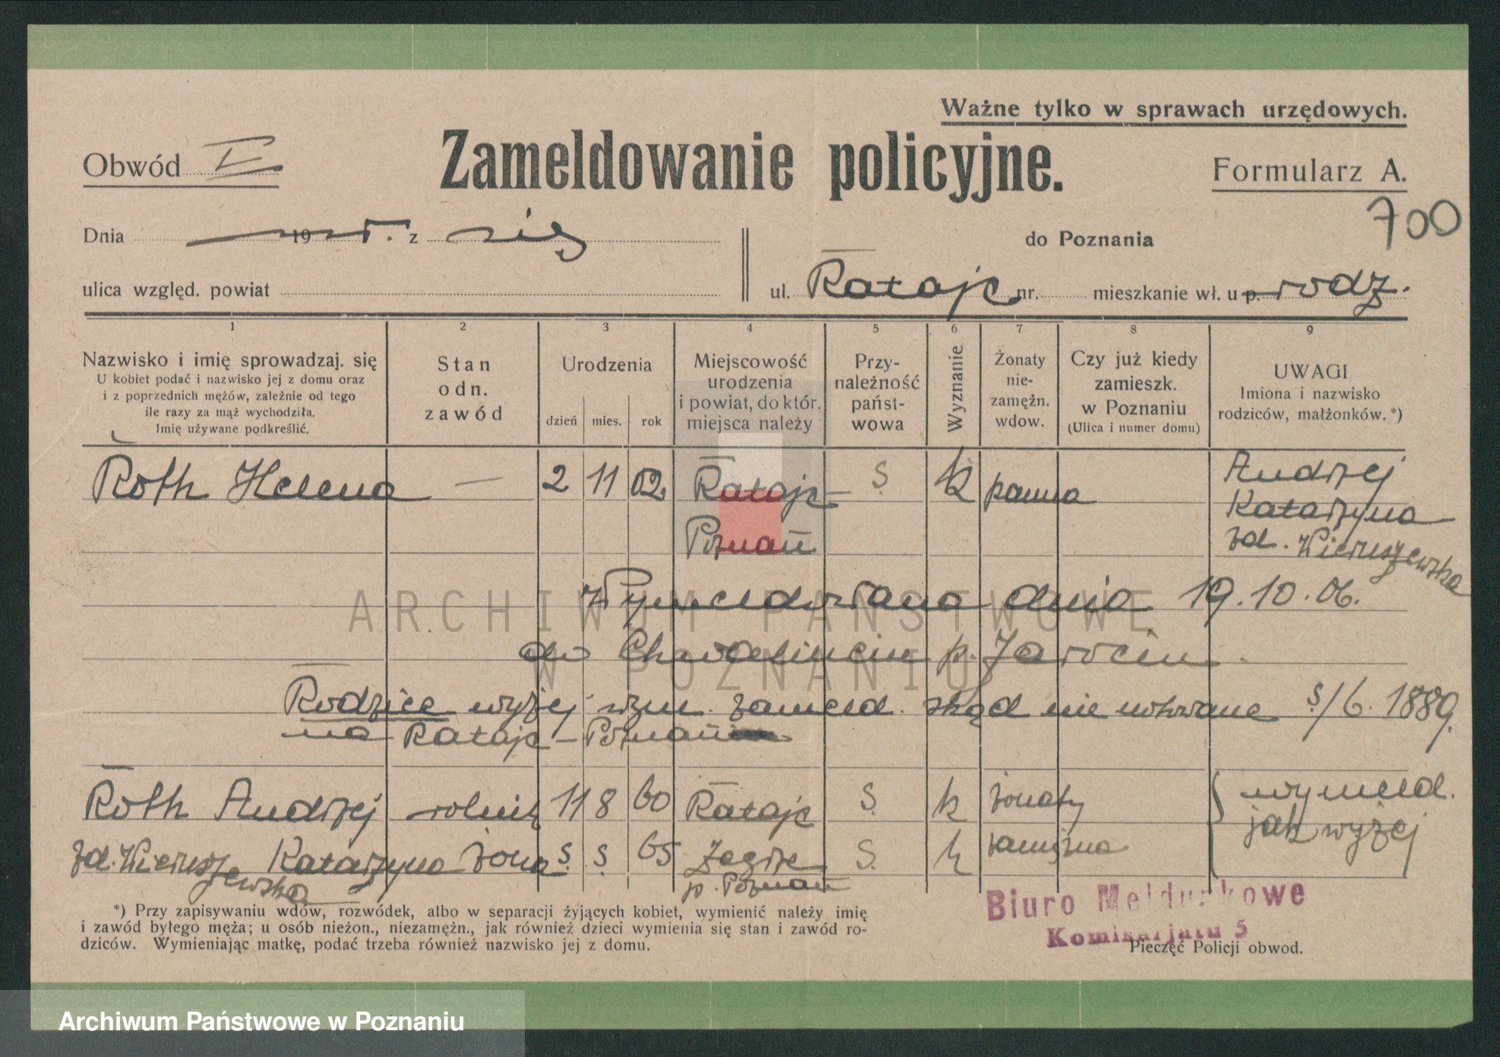 Ważne tylko w sprawach urzędowych.
Obwód V
Zameldowanie policyjne.
Formularz A.
700
Dnia 19 r. z
do Poznania
ulica względ. powiat
ul. Rataje nr. mieszkanie wł. u p. rodz.
1 2 3 4 5 6 7 8 9
Nazwisko i imię sprowadzaj. się
U kobiet podać i nazwisko jej z domu oraz
i z poprzednich mężów, zależnie od tego
ile razy za mąż wychodziła.
Imię używane podkreślić.
Stan
odn.
zawód
Urodzenia
dzień mies. rok
Miejscowość
urodzenia
i powiat, do któr.
miejsca należy
Przy-
należność
państ-
wowa
Wyznanie
Żonaty
nie-
zamężn.
wdow.
Czy już kiedy
zamieszk.
w Poznaniu
(Ulica i numer domu)
UWAGI
Imiona i nazwisko
rodziców, małżonków. *)
Roth Helena — 2 11 02 Rataje - Poznań k panna
Andrzej
Katarzyna
zd. Wieruszewska
Wymeldowana dnia 19.10.06.
do p. Jarocin
Rodzice wyżej wym. zameld. skąd nie notowane /6. 1889.
na Rataje - Poznań
Roth Andrzej rolnik 11 8 60 Rataje k żonaty
wymeld.
jak wyżej
zd. Wieruszewska Katarzyna żona 65 Żegrze p. Poznań k zamężna
*) Przy zapisywaniu wdów, rozwódek, albo w separacji żyjących kobiet, wymienić należy imię
i zawód byłego męża; u osób nieżon., niezamężn., jak również dzieci wymienia się stan i zawód ro-
dziców. Wymieniając matkę, podać trzeba również nazwisko jej z domu.
Biuro Meldunkowe
Komisarjatu 5
Pieczęć Policji obwod.
ARCHIWUM PAŃSTWOWE
W POZNANIU
Archiwum Państwowe w Poznaniu